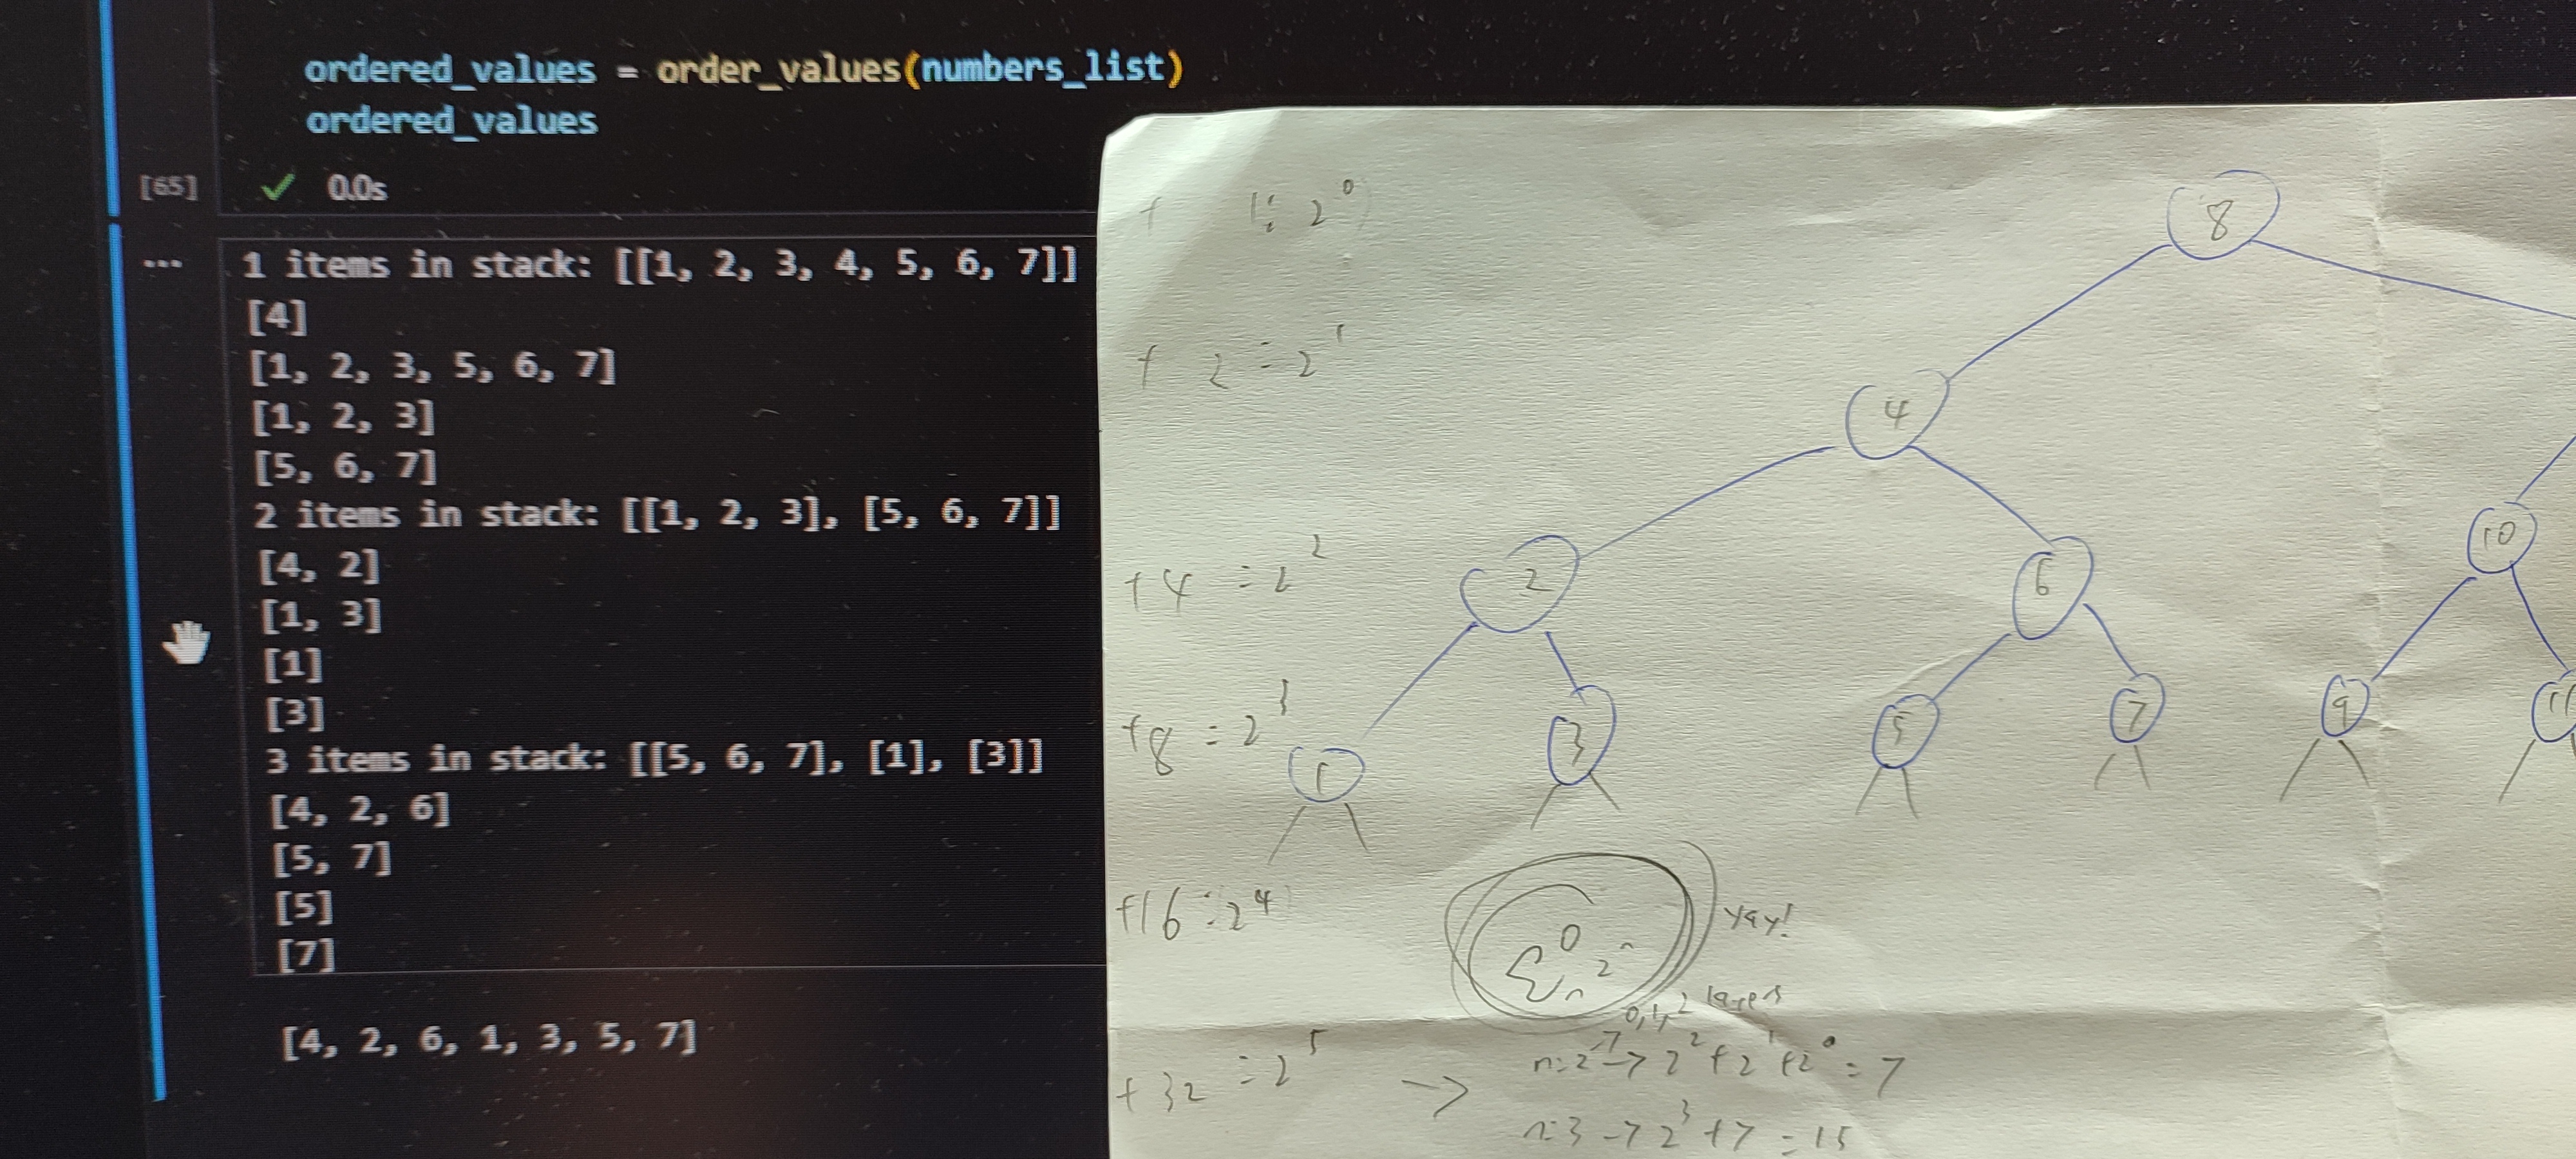 ordered_values = order_values(numbers_list)
ordered_values
[65] ✓ 0.0s
... 1 items in stack: [[1, 2, 3, 4, 5, 6, 7]]
[4]
[1, 2, 3, 5, 6, 7]
[1, 2, 3]
[5, 6, 7]
2 items in stack: [[1, 2, 3], [5, 6, 7]]
[4, 2]
[1, 3]
[1]
[3]
3 items in stack: [[5, 6, 7], [1], [3]]
[4, 2, 6]
[5, 7]
[5]
[7]
[4, 2, 6, 1, 3, 5, 7]
+ 1 = 2⁰
8
+ 2 = 2¹
4
+4 = 2²
2 6 10
+8 = 2³
1 3 5 7 9 11
+16 = 2⁴
Σ 0 n 2ⁿ
yay!
0,1,2 layers
+32 = 2⁵ -> n=2 -> 2² + 2¹ + 2⁰ = 7
n=3 -> 2³ + 7 = 15